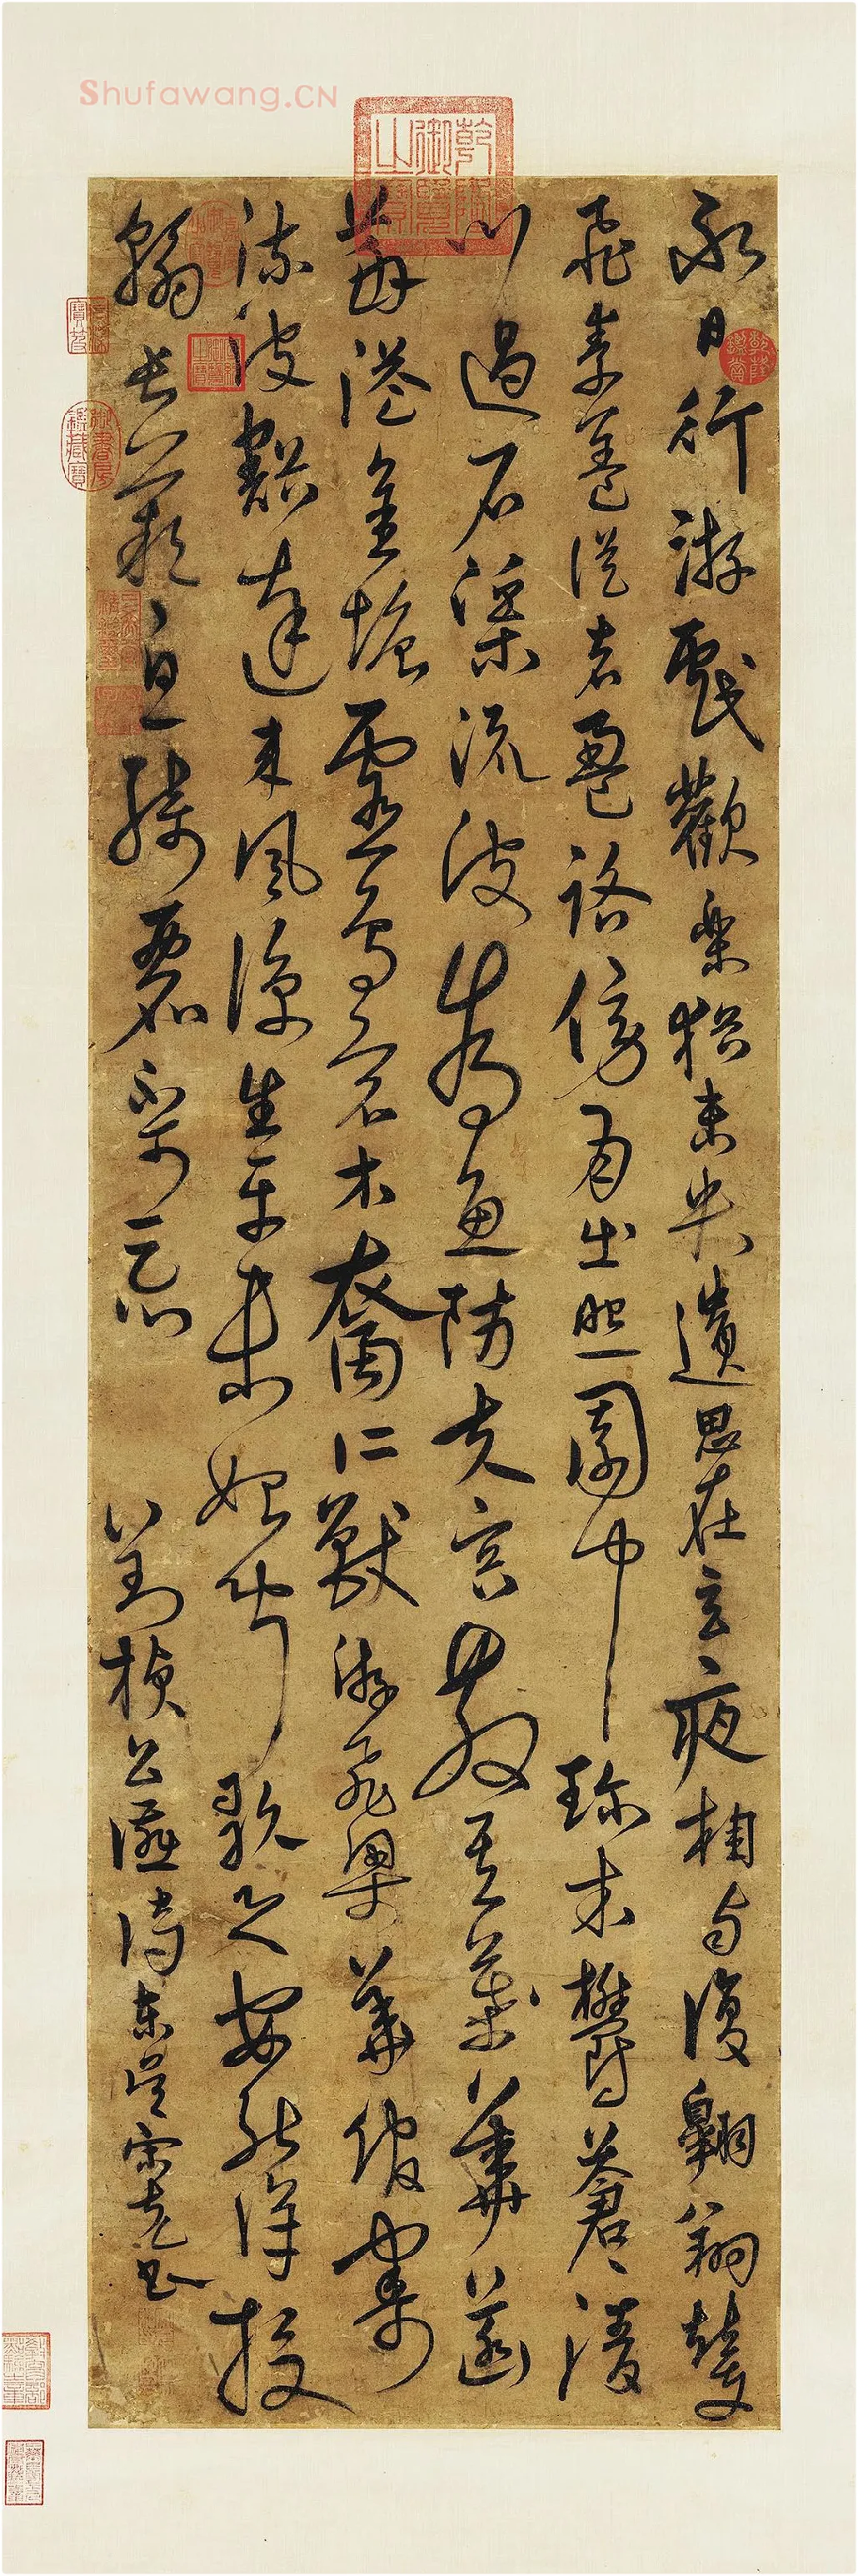 Shufawang.CN
乾隆御覽之寶
乾隆鑑賞
永日行游戲歡樂猶未央遺思在玄夜相與復翱翔輦
飛素蓋從者盈路傍月出照園中珍木鬱蒼〻清
川過石渠流波為魚防夫容散其華菡
萏溢金塘靈鳥宿水裔仁獸游飛梁華館寄
流波豁達來風涼生平未始聞歌之安能詳投
翰長歎息綺麗不可忘 右劉楨公讌詩東吳宋克書
石渠寶笈
御書房鑑藏寶